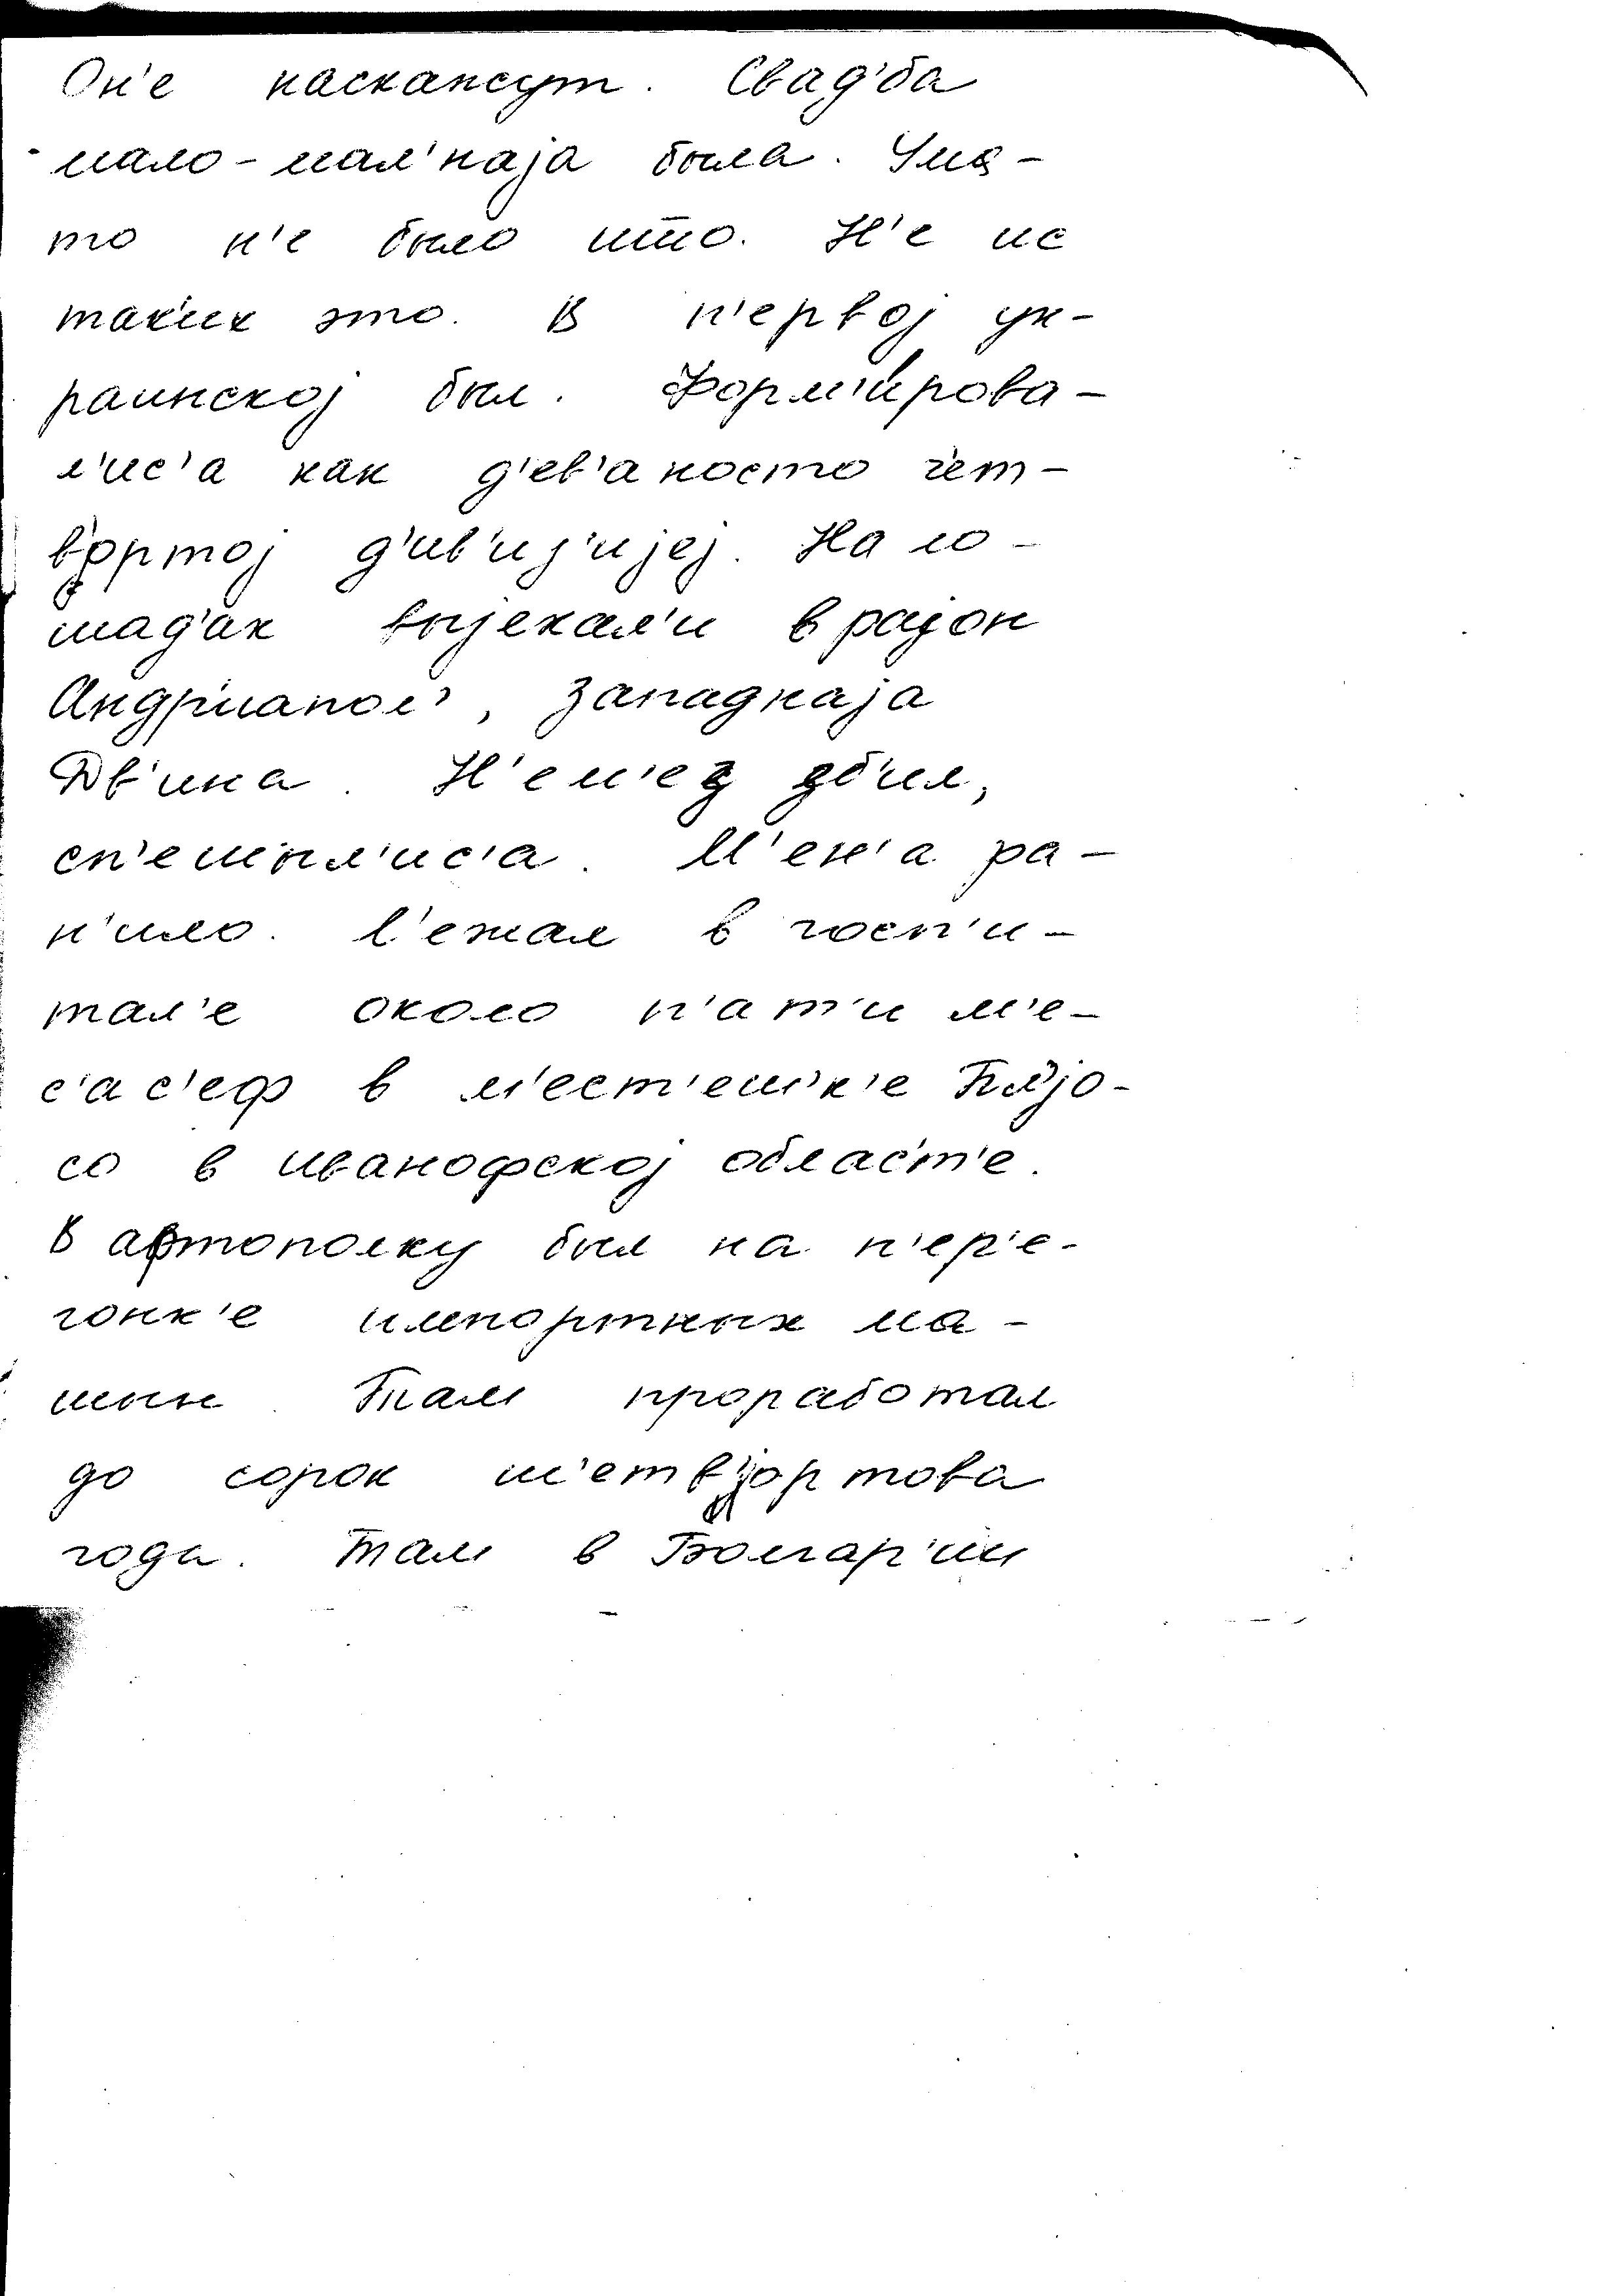 Он'е наскажут. Свад'ба
мало-мал'наја была. Ума-
то н'е было што. Н'е ис
так'их это. В п'ервој ук-
раинској был. Форм'ирова-
л'ис'а как д'ев'аносто чет-
в'ортој д'ив'из'ијеј. На ло-
шад'ах выјехал'и в рајон
Андр'иапол', Западнаја
Дв'ина. Н'ем'ец д'ил,
сп'ешыл'ис'а. М'ен'а ра-
н'ило. Л'ежал в госп'и-
тал'е около п'ат'и м'е-
с'ас'еф в м'ест'ешк'е Пл'јо-
со в Ивановској област'е.
В афтополку был на п'ер'е-
гонк'е импортных ма-
шын. Там проработал
до сорок ш'етв'јортова
года. Там в Болгар'ии